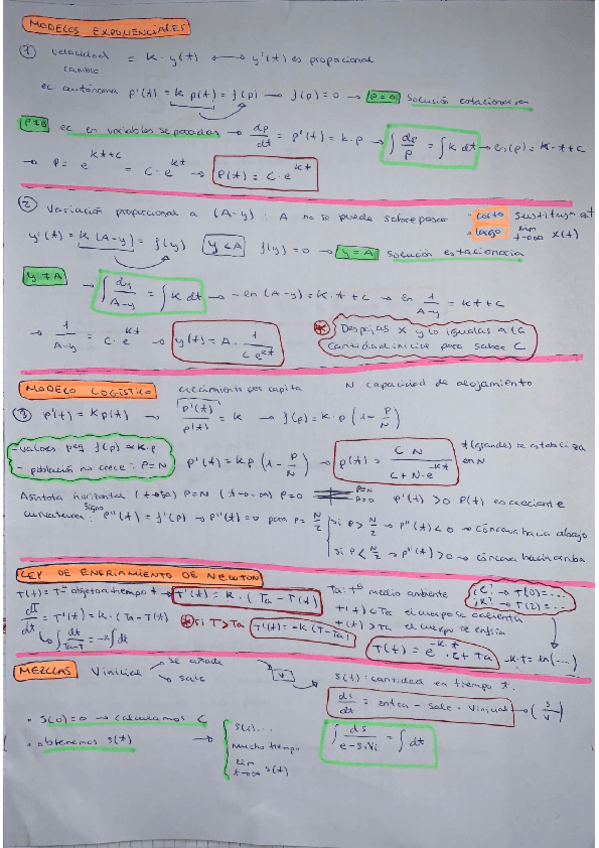 MODELOS EXPONENCIALES
① velocidad cambio = K · y(t) ⟷ y'(t) es propocional
ec autónoma p'(t) = K p(t) = f(p) → f(p) = 0 → p = 0 solución estacionaria
p≠0 ec en variables separadas → dp/dt = p'(t) = k·p → ∫ dp/p = ∫ k dt → ln(p) = k·t + c
→ p = e^(kt+c) = C · e^(kt) → P(t) = C · e^(kt)
② Variación proporcional a (A-y) : A no se puede sobrepasar
· corto
· largo lim t→∞ x(t)
y'(t) = K (A-y) = f(y) y < A f(y) = 0 → y = A solución estacionaria
y ≠ A → ∫ dy/(A-y) = ∫ K dt → -ln (A-y) = K·t + c → ln 1/(A-y) = kt + c
→ 1/(A-y) = C · e^(kt) → y(t) = A - 1/(C e^(kt))
Despejas x y lo igualas a la cantidad inicial para saber C
MODELO LOGÍSTICO crecimiento per capita N capacidad de alojamiento
③ p'(t) = K p(t) → p'(t)/p(t) = K → f(p) = K·p (1 - p/N)
- valores peq f(p) ≈ K·p
- población no crece : p = N
p'(t) = kp (1 - p/N) → p(t) = C N / (C + N·e^(-kt)) t (grande) se estabiliza en N
Asíntota horizontal (t→∞) p=N (t→-∞) p=0 p=N p=0 p'(t) > 0 P(t) es creciente
curvatura : signo p''(t) = f'(p) → p''(t) = 0 para p = N/2 si p > N/2 → p''(t) < 0 → cóncava hacia abajo
si p < N/2 → p''(t) > 0 → cóncava hacia arriba
LEY DE ENFRIAMIENTO DE NEWTON
T(t) = Tª objeto a tiempo t → T'(t) = K · (Ta - T(t)) Ta: Tª medio ambiente ¿C? → T(0) = ...
¿K? → T(2) = ...
dT/dt = T'(t) = K · (Ta - T(t)) si T > Ta T'(t) = -K (T - Ta) T(t) < Ta el cuerpo se calienta
T(t) > Ta el cuerpo se enfría
∫ dT/(Ta-T) = -k∫dt T(t) = e^(-k·t) · C + Ta -k·t = ln(...)
MEZCLAS V inicial se añade
sale
V
s(t) : cantidad en tiempo t.
ds/dt = entra - sale · V inicial → (s/v)
· s(0) = 0 → calculamos C
· obtenemos s(t) → s(2)...
mucho tiempo
lim t→∞ s(t)
∫ ds/(e-s·Vi) = ∫ dt